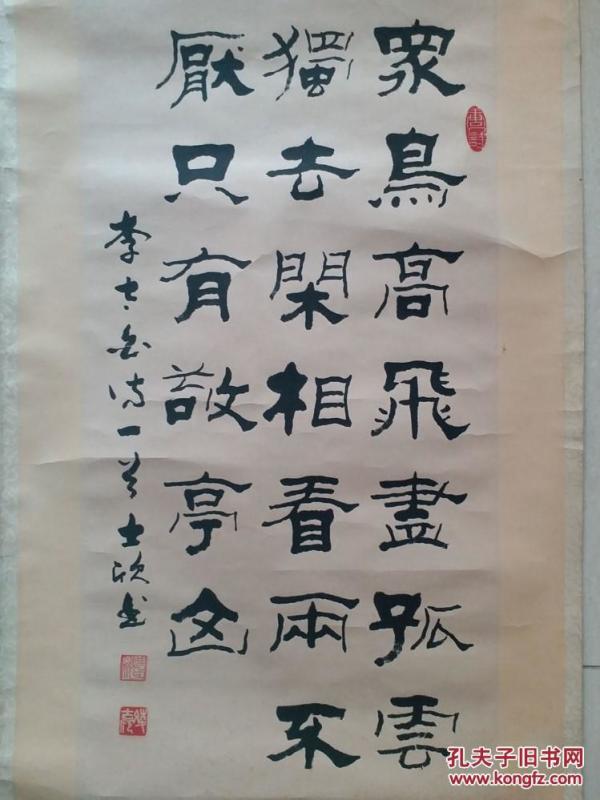 眾鳥高飛盡孤雲
獨去閑相看兩不
厭只有敬亭山
李太白诗一首士欣书
孔夫子旧书网
www.kongfz.com